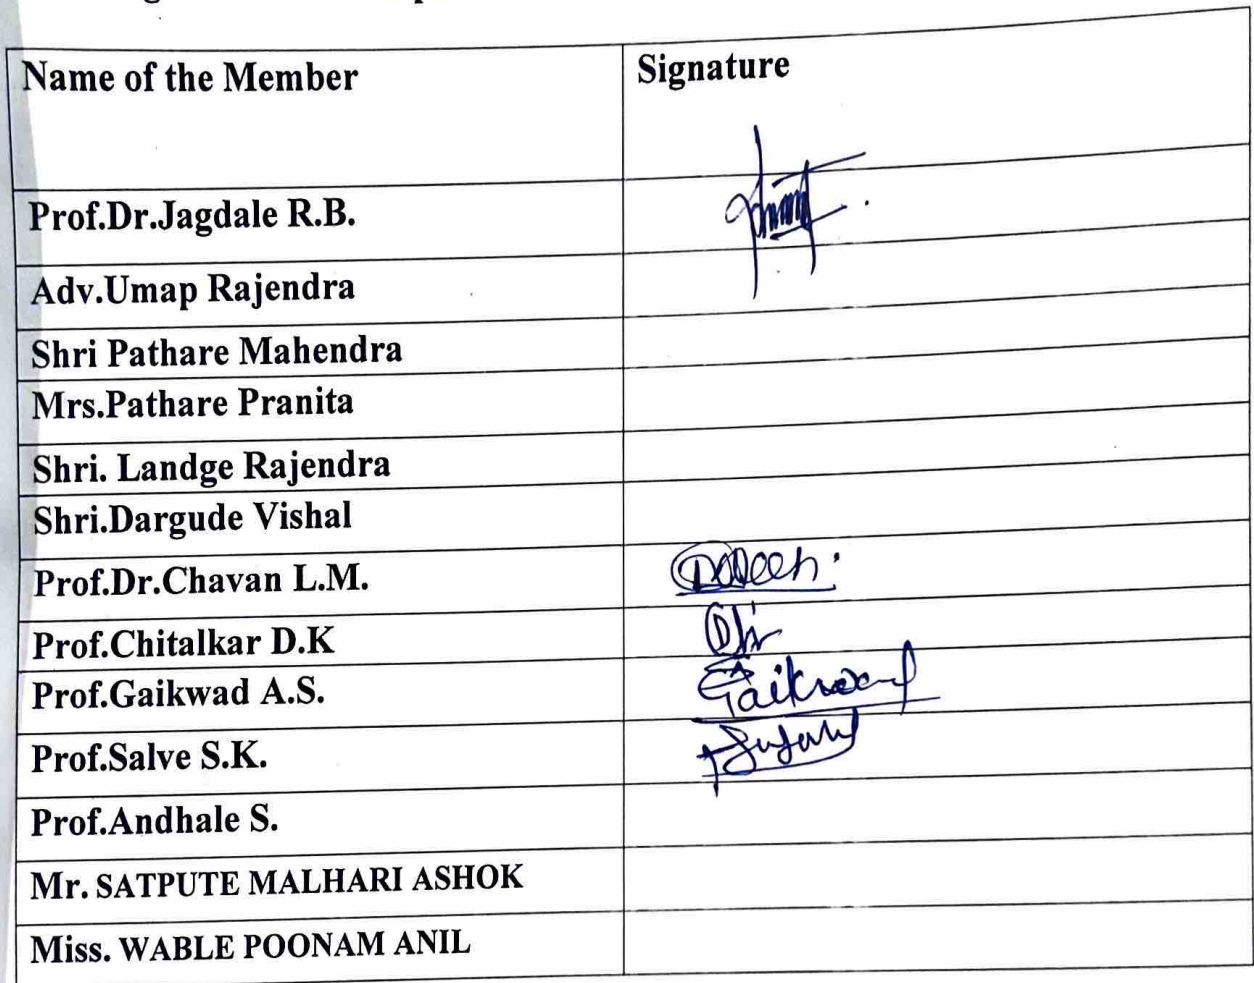 Name of the Member Signature
Prof.Dr.Jagdale R.B.
Adv.Umap Rajendra
Shri Pathare Mahendra
Mrs.Pathare Pranita
Shri. Landge Rajendra
Shri.Dargude Vishal
Prof.Dr.Chavan L.M.
Prof.Chitalkar D.K
Prof.Gaikwad A.S. Gaikwad
Prof.Salve S.K.
Prof.Andhale S.
Mr. SATPUTE MALHARI ASHOK
Miss. WABLE POONAM ANIL